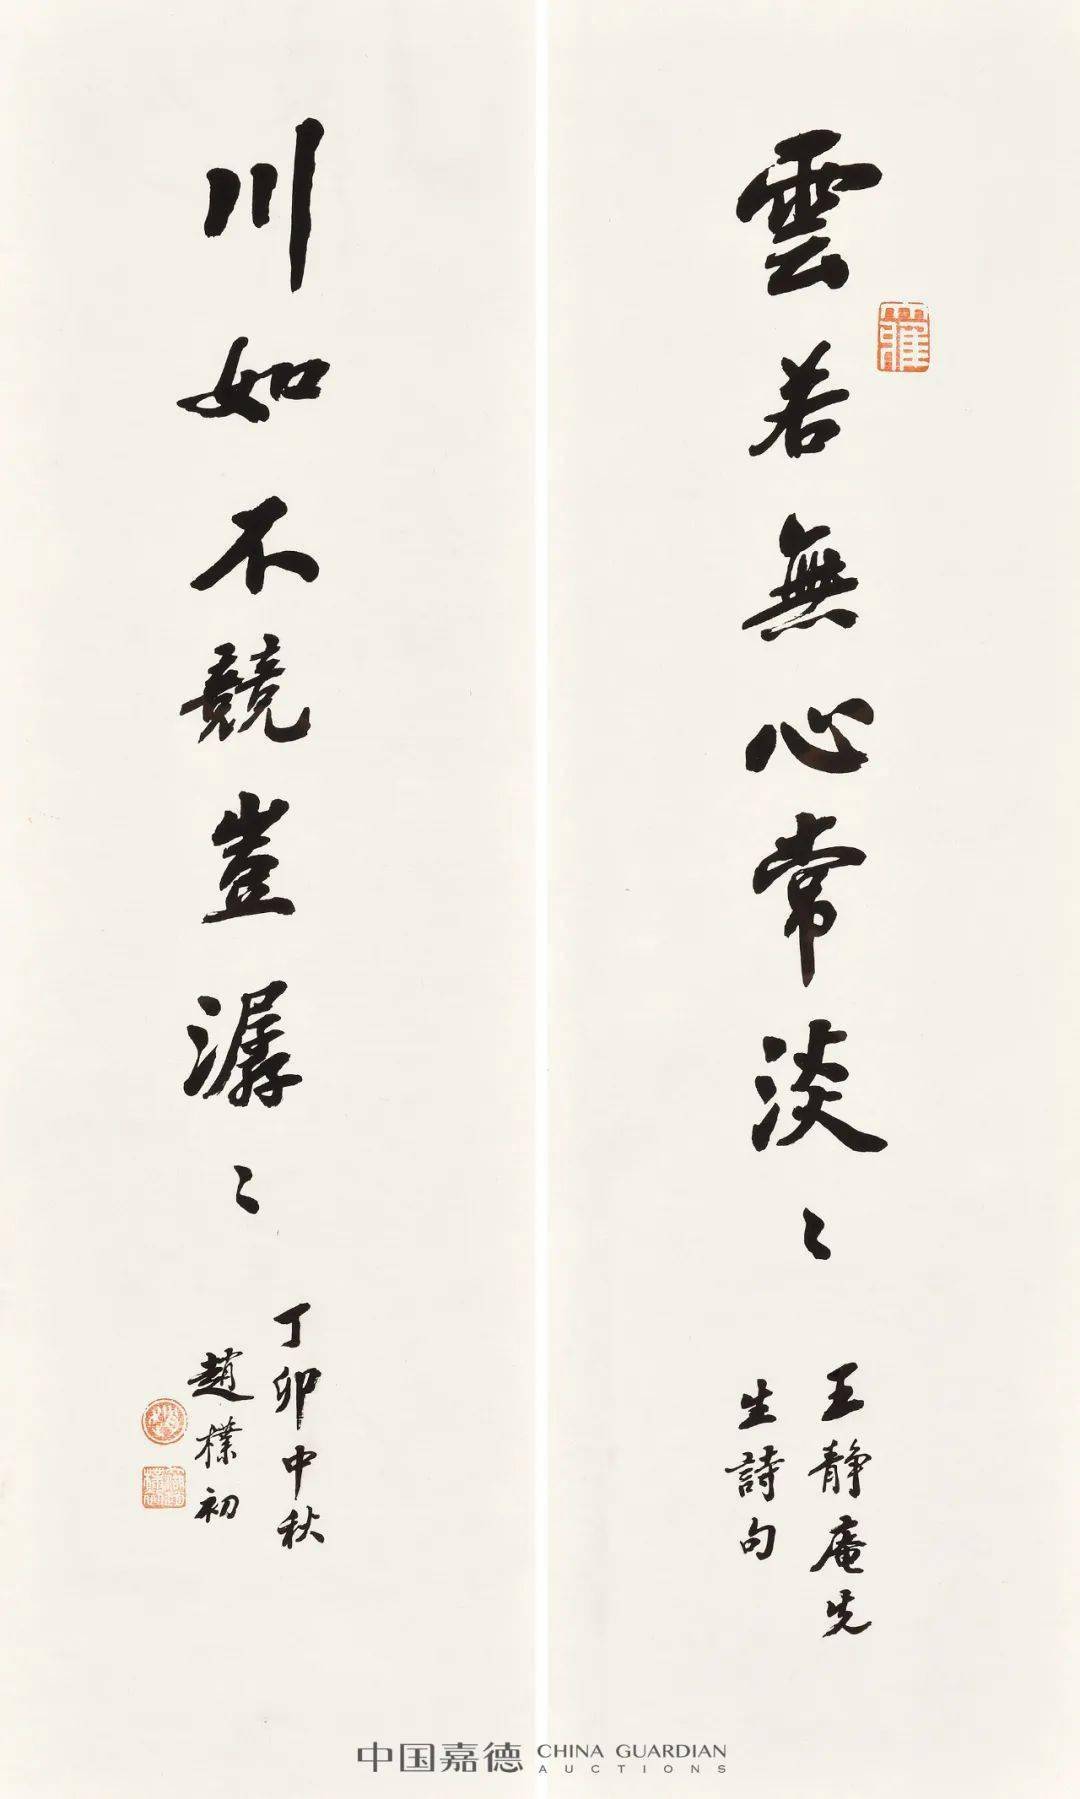 雲若無心常淡〻
王静庵先
生詩句
川如不競豈潺〻
丁卯中秋
趙樸初
中国嘉德 CHINA GUARDIAN
AUCTIONS